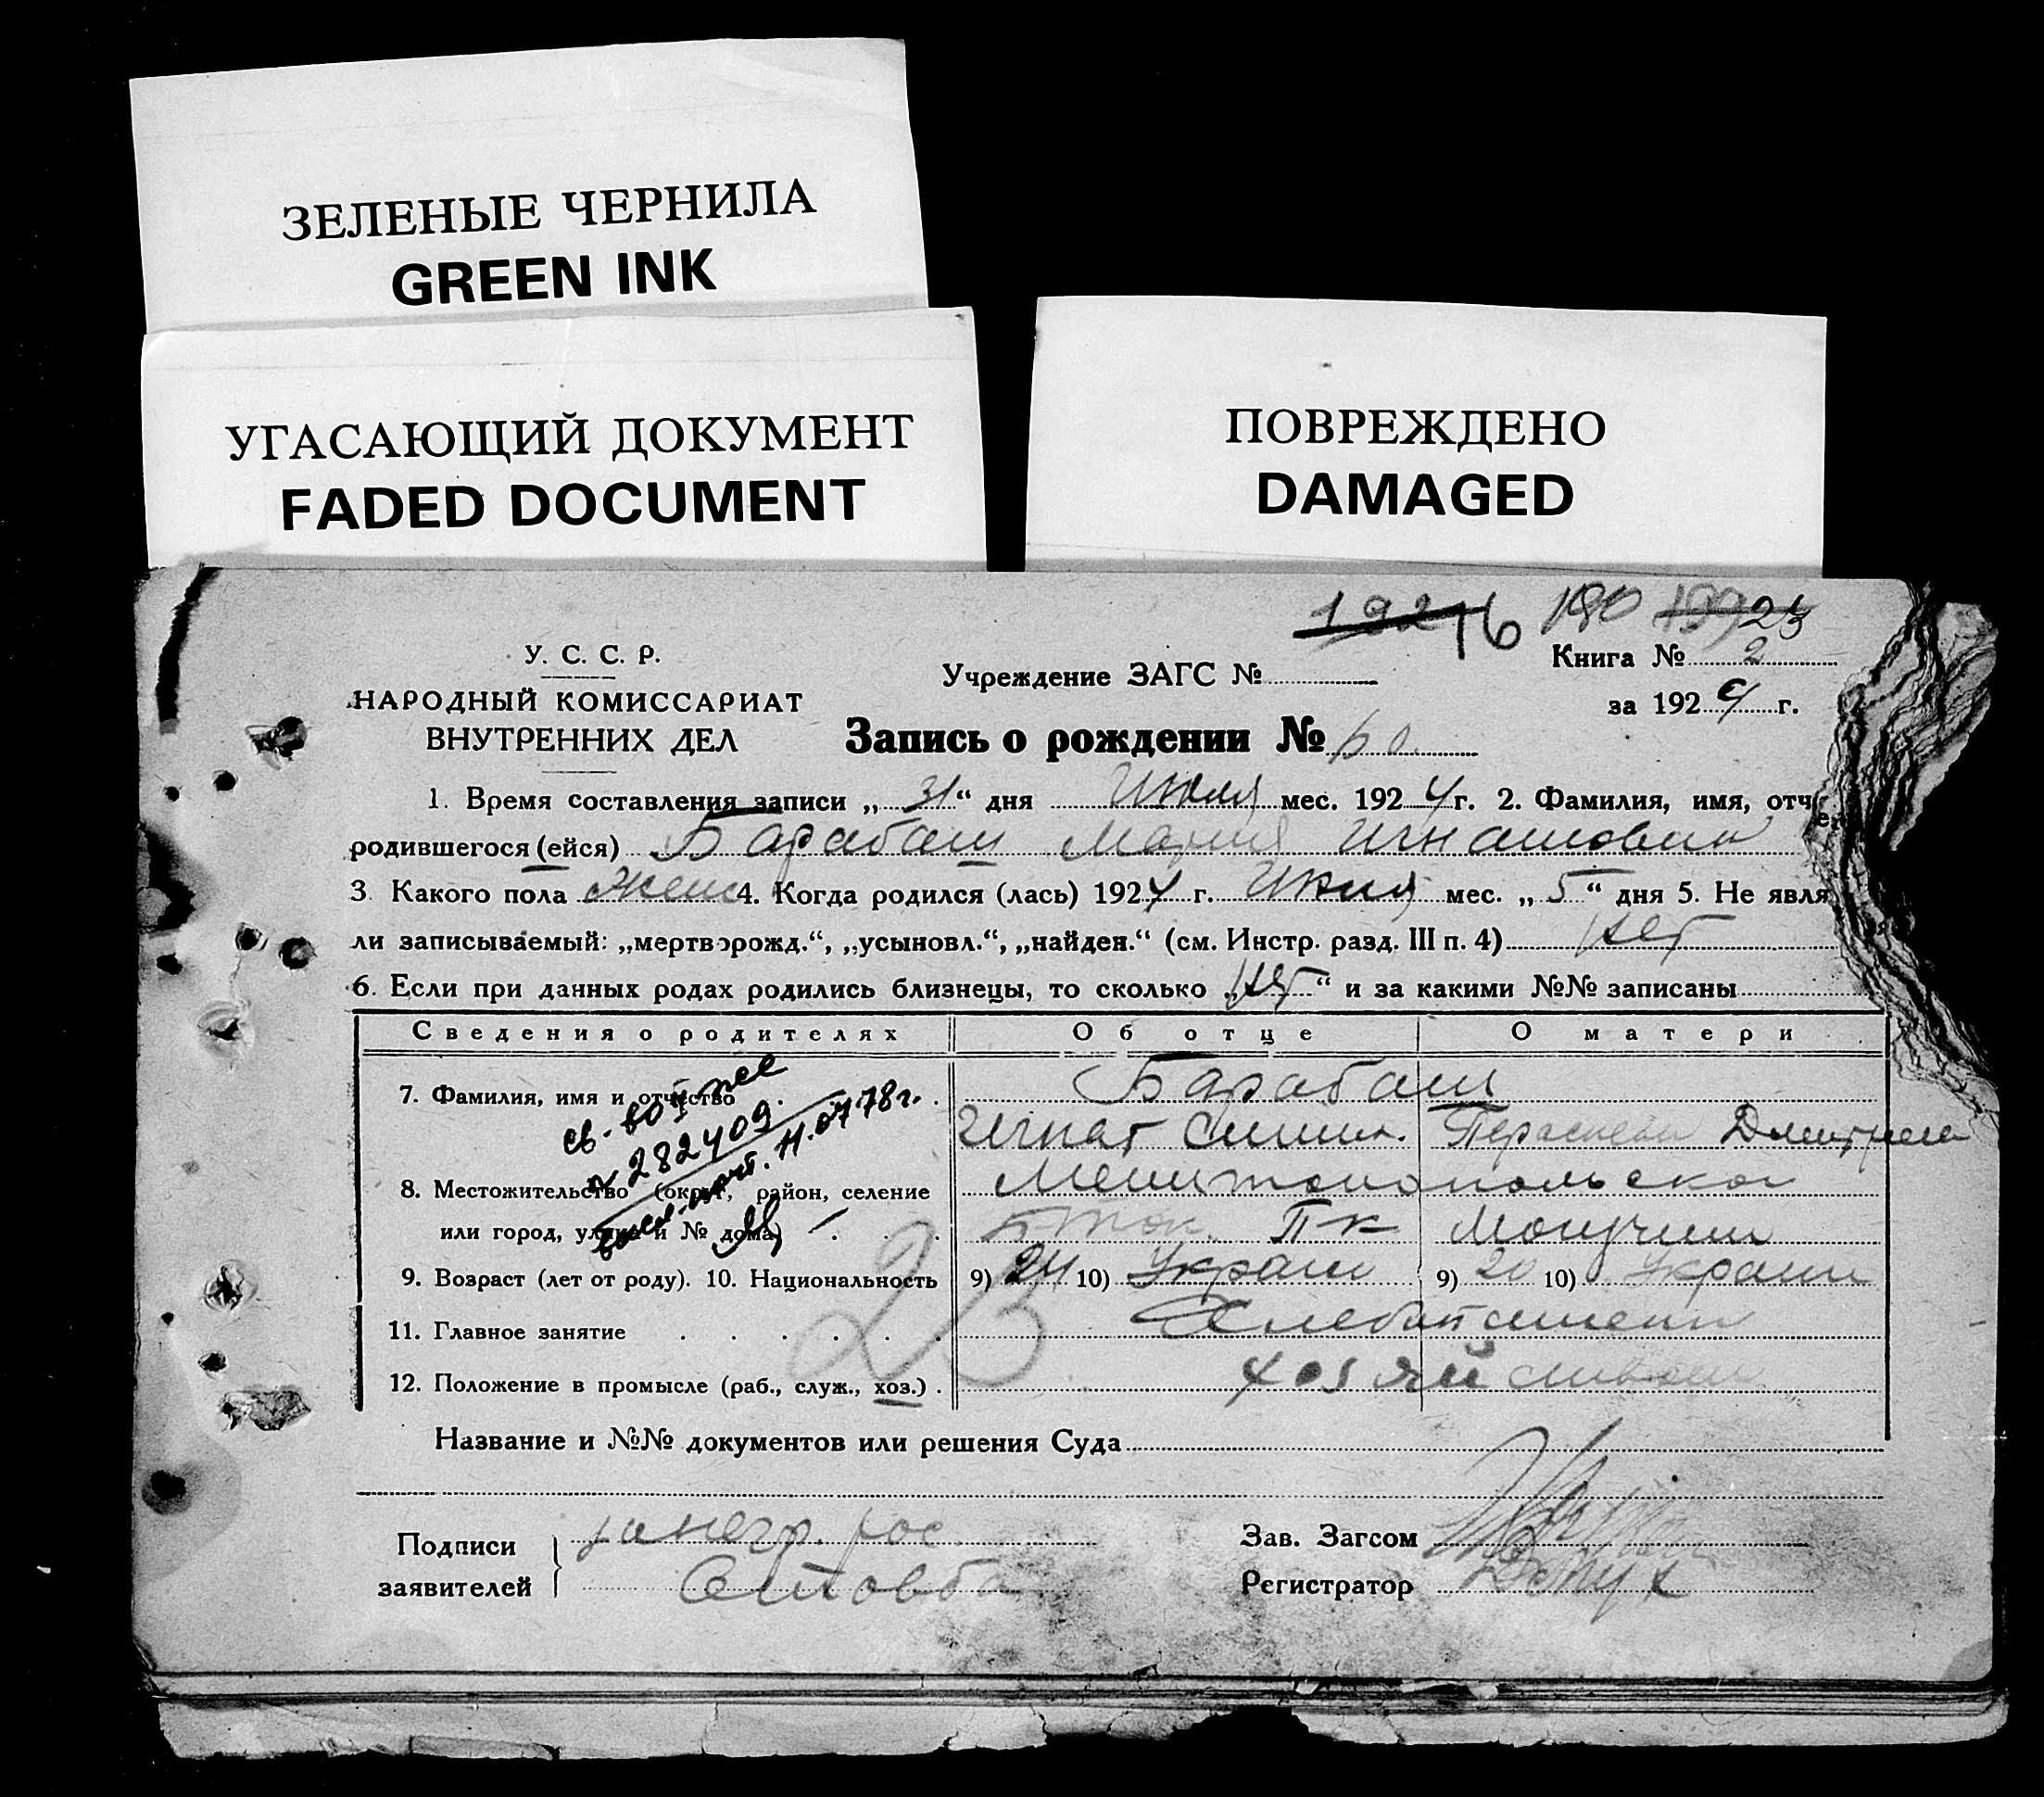 ЗЕЛЕНЫЕ ЧЕРНИЛА
GREEN INK
УГАСАЮЩИЙ ДОКУМЕНТ
FADED DOCUMENT
ПОВРЕЖДЕНО
DAMAGED
190
У. С. С. Р.
НАРОДНЫЙ КОМИССАРИАТ
ВНУТРЕННИХ ДЕЛ
Учреждение ЗАГС №
Книга № 2
за 1924 г.
Запись о рождении № 60
1. Время составления записи „ 31 “ дня Июля мес. 1924 г. 2. Фамилия, имя, отч
родившегося (ейся) Барабаш Мария Игнатовна
3. Какого пола Женс 4. Когда родился (лась) 1924 г. Июля мес. „ 5 “ дня 5. Не явля
ли записываемый: „мертворожд.“, „усыновл.“, „найден.“ (см. Инстр. разд. III п. 4) нет
6. Если при данных родах родились близнецы, то сколько „нет“ и за какими №№ записаны
Сведения о родителях Об отце О матери
7. Фамилия, имя и отчество Барабаш
Игнат Дмитрие
св. 
282409
07 78г.
8. Местожительство (округ, район, селение
или город, улица и № дома)
9. Возраст (лет от роду). 10. Национальность 9) 24 10) Украин 9) 20 10) Украин
11. Главное занятие Хлебопашени
23
12. Положение в промысле (раб., служ., хоз.)
Название и №№ документов или решения Суда
Подписи
заявителей
Зав. Загсом
Регистратор